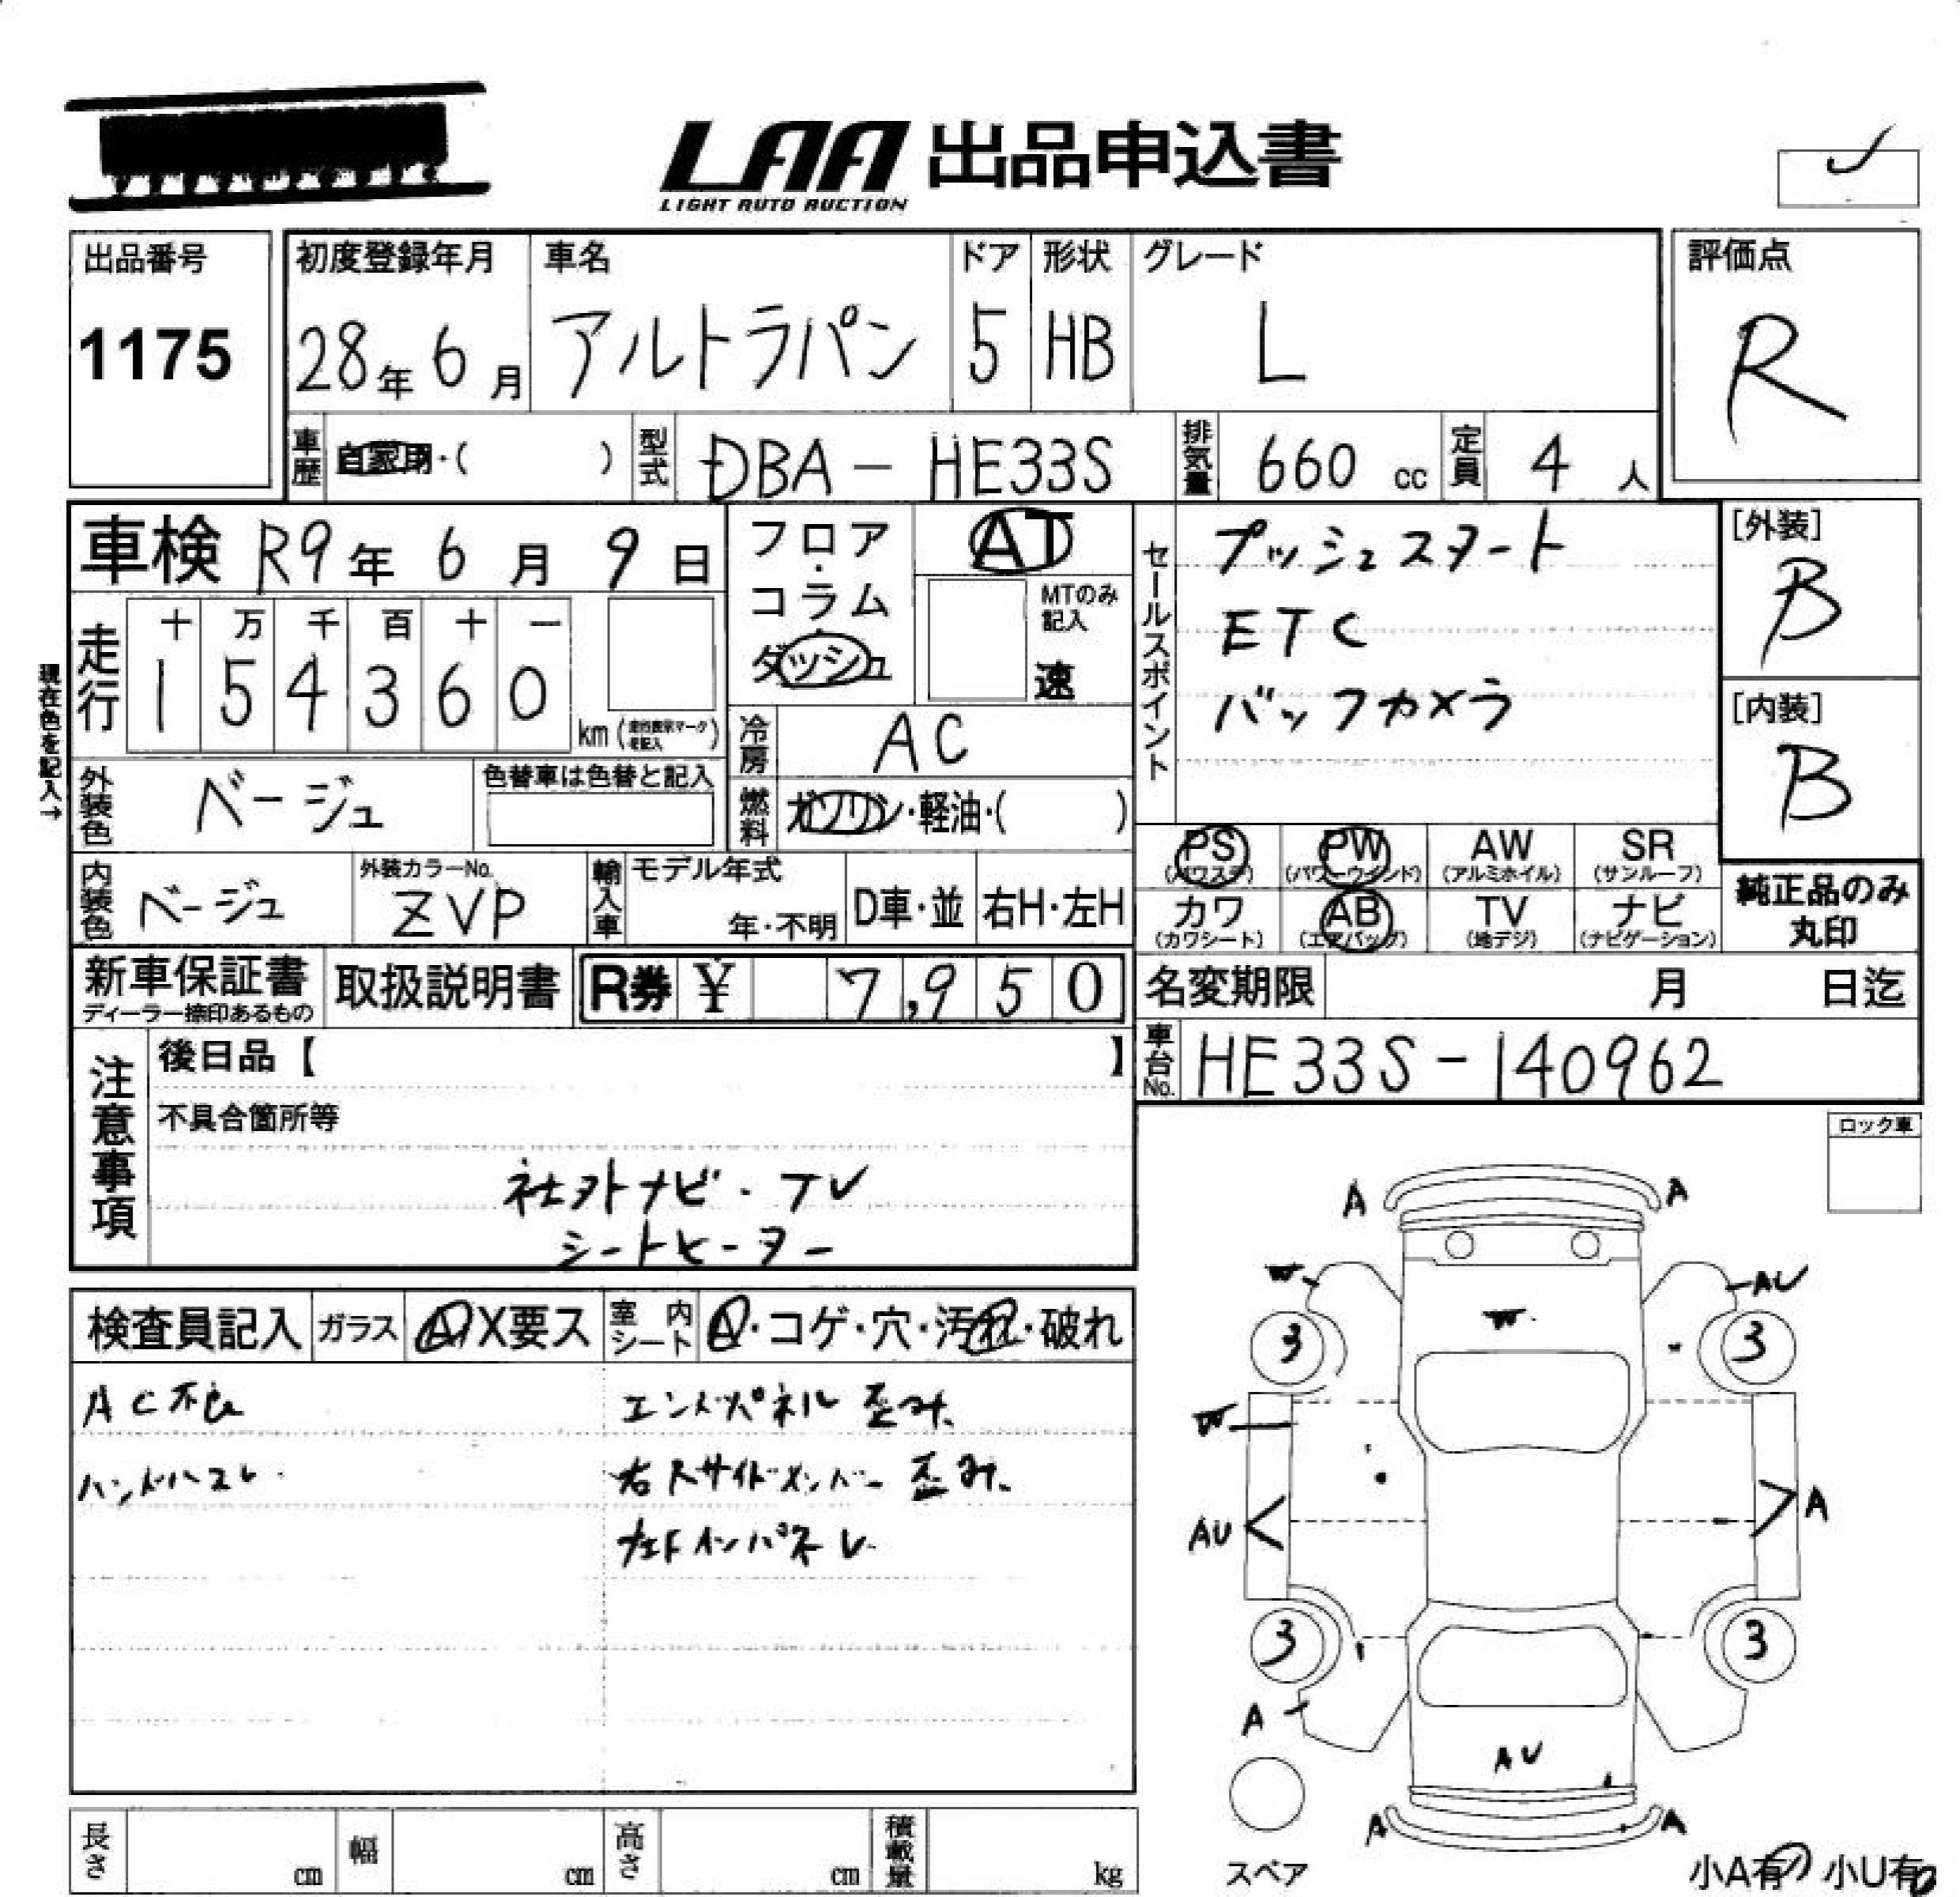 LAA 出品申込書
LIGHT AUTO AUCTION
出品番号 1175
初度登録年月 28年 6月
車名 アルトラパン
ドア 5
形状 HB
グレード L
評価点 R
車歴 自家用・( )
型式 DBA - HE33S
排気量 660 cc
定員 4 人
車検 R9年 6月 9日
フロア・コラム・ダッシュ
AT
MTのみ記入
速
セールスポイント
プッシュスタート
ETC
バックカメラ
[外装] B
[内装] B
現在色を記入→
走行 十 万 千 百 十 一
1 5 4 3 6 0 km
冷房 AC
燃料 ガソリン・軽油・( )
外装色 ベージュ
色替車は色替と記入
内装色 ベージュ
外装カラーNo. ZVP
輸入車 モデル年式 年・不明
D車・並 右H・左H
PS (パワステ) PW (パワーウインド) AW (アルミホイル) SR (サンルーフ)
カワ (カワシート) AB (エアバッグ) TV (地デジ) ナビ (ナビゲーション)
純正品のみ丸印
新車保証書
ディーラー捺印あるもの
取扱説明書
R券 ¥ 7,950
名変期限 月 日迄
車台No. HE33S-140962
注意事項
後日品【 】
不具合箇所等
社外ナビ・TV
シートヒーター
ロック車
検査員記入 ガラス A X要ス 室内シート A・コゲ・穴・汚れ・破れ
AC不良
ハンドルスレ
エンドパネル 歪み
右Rサイドメンバー 歪み
左Fインパネ V
A A
W AU
W
3 3
W
AU A
3 3
A
AU
A A
スペア
小A有 小U有
長さ cm 幅 cm 高さ cm 積載量 kg